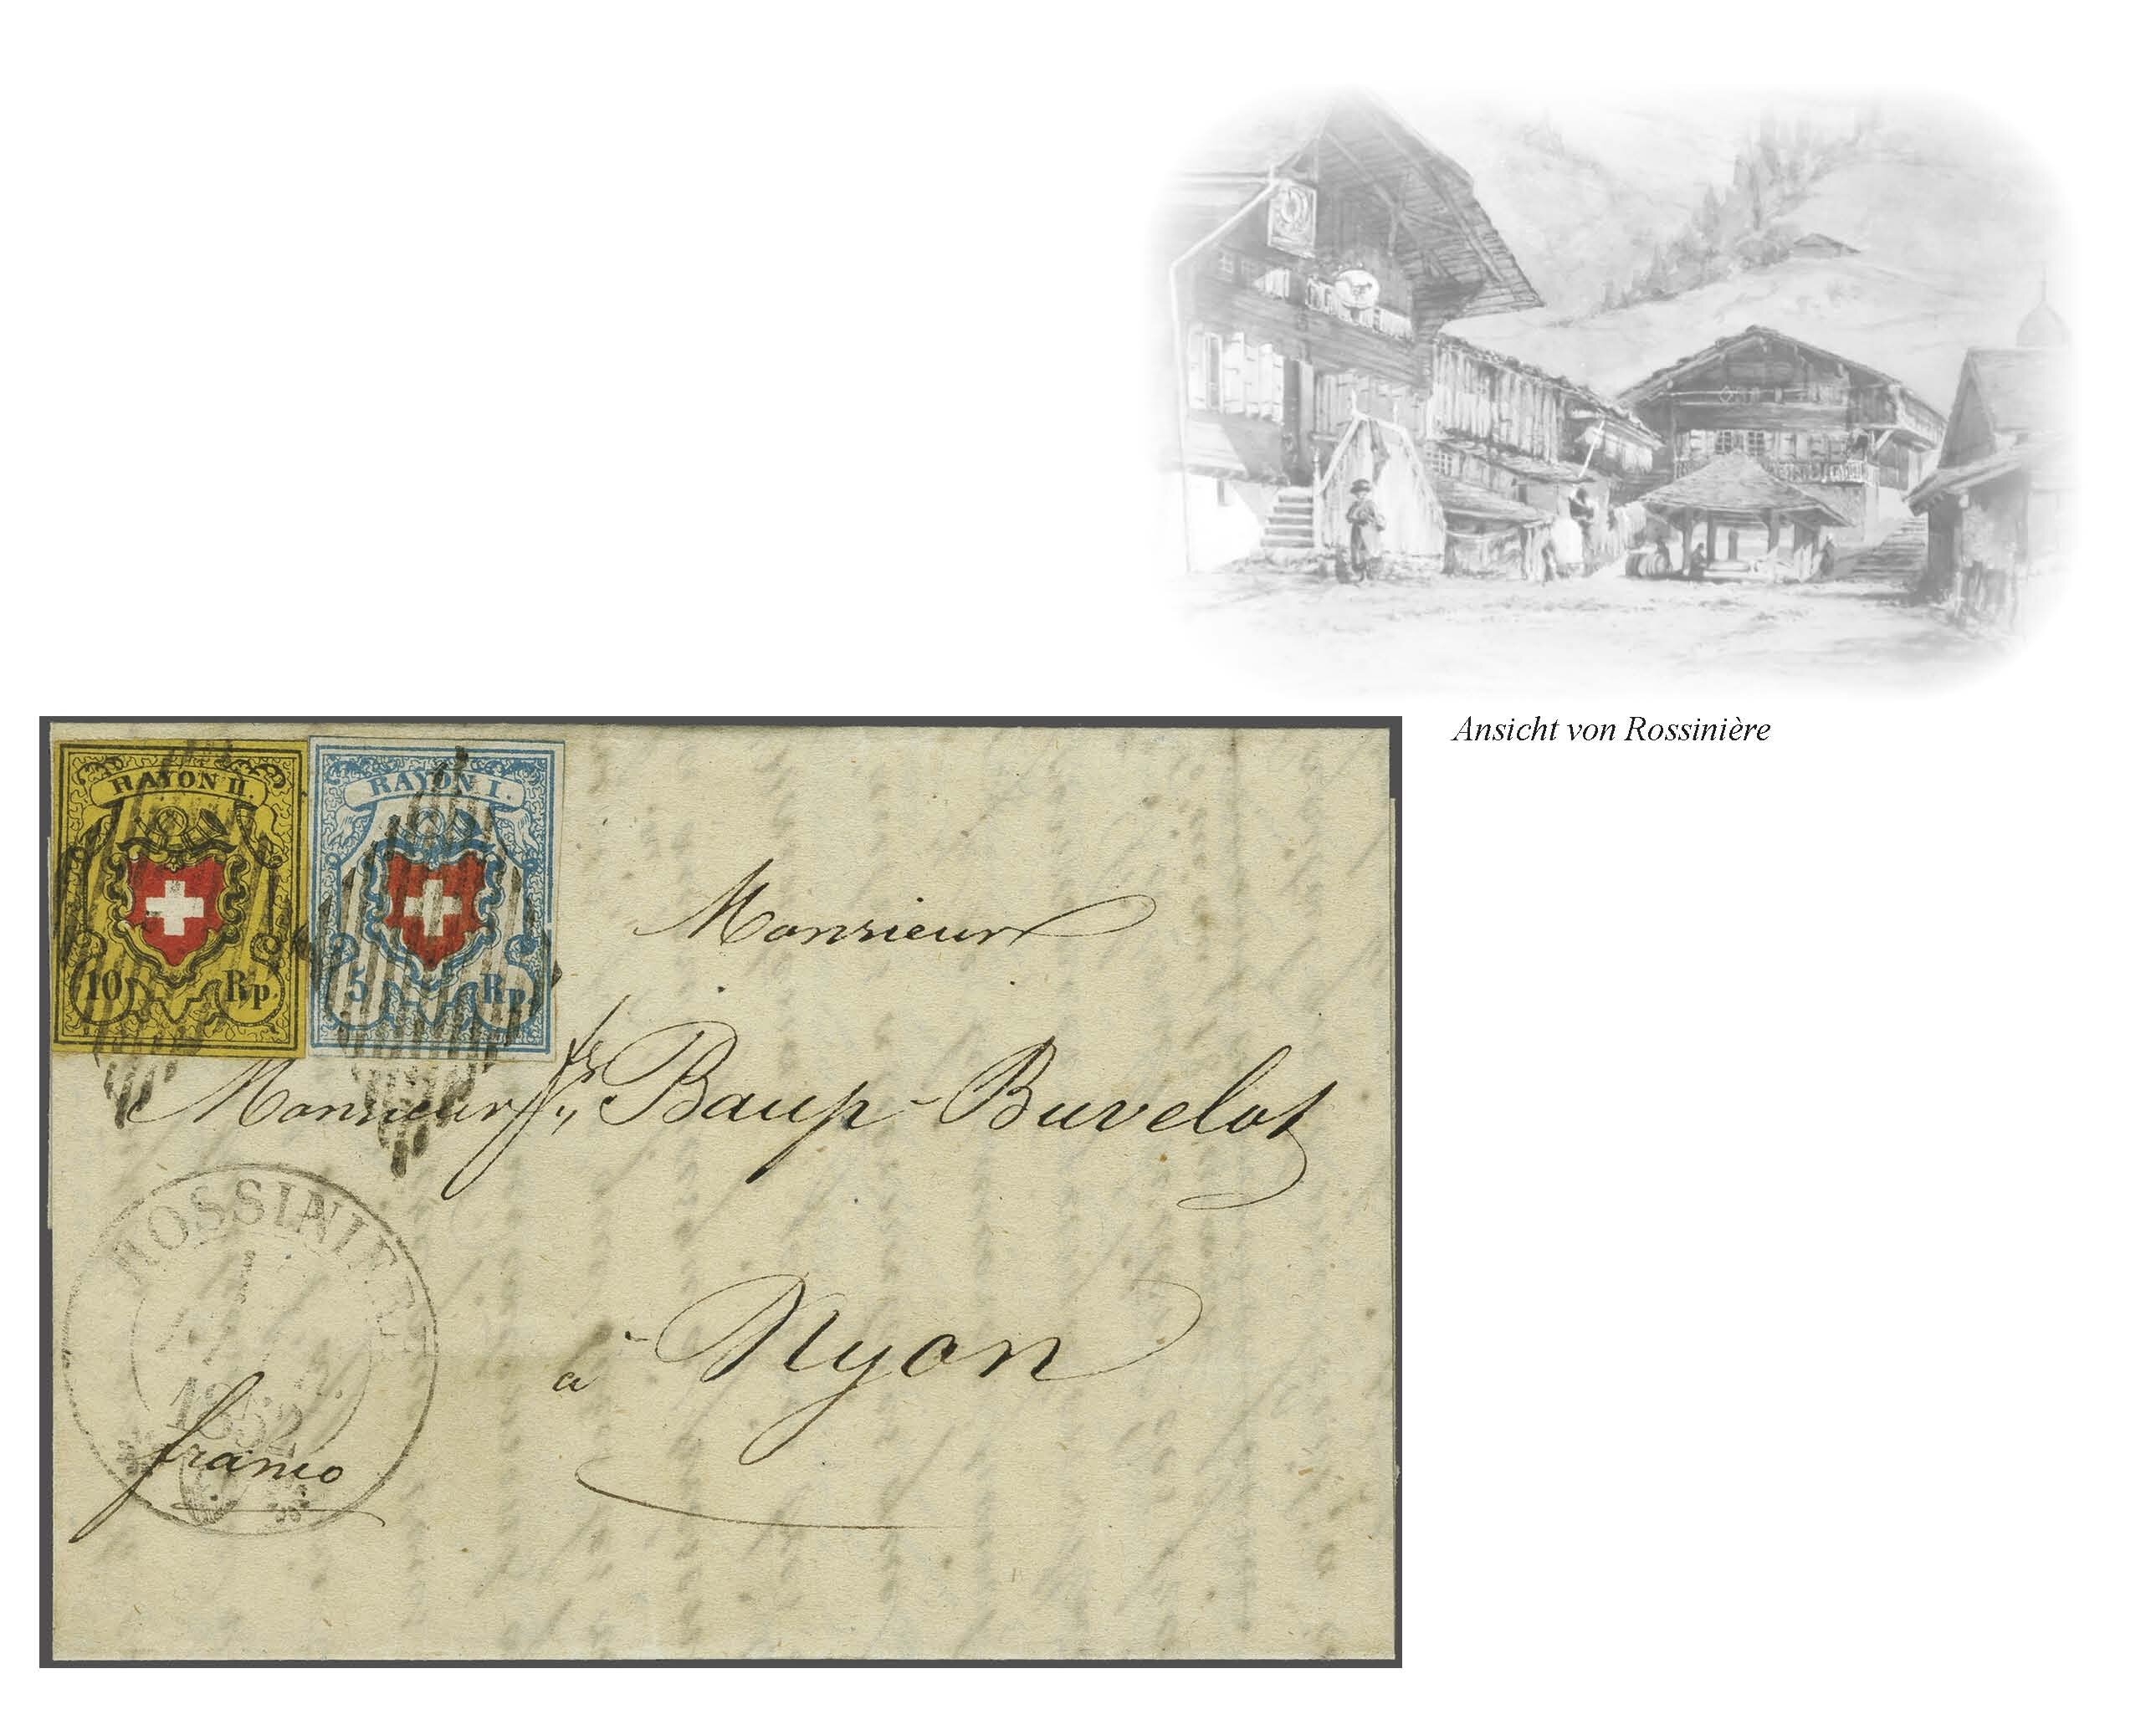 Ansicht von Rossinière
RAYON II.
10 Rp.
RAYON I.
5 Rp.
Monsieur
Monsieur Baup-Buvelot
à Nyon
ROSSINIERE
1852
franco